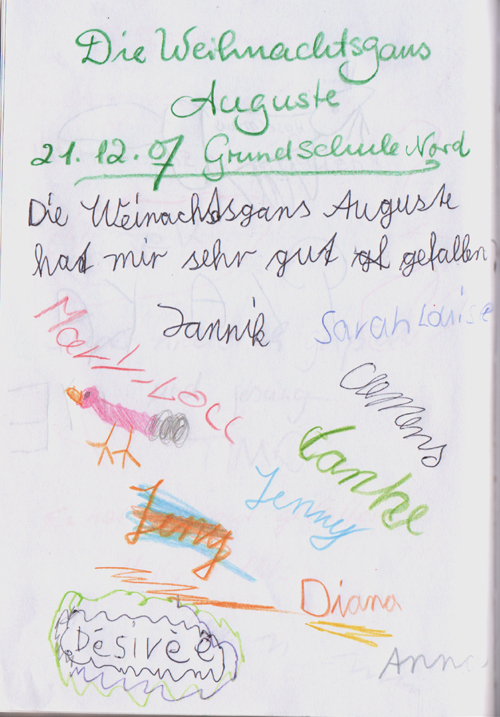 Die Weihnachtsgans
Auguste
21.12.07 Grundschule Nord
Die Weinachtsgans Auguste
hat mir sehr gut gefallen
Jannik
Sarah Louise
Clemens
Danke
Jenny
Jenny
Diana
Désirèe
Anna